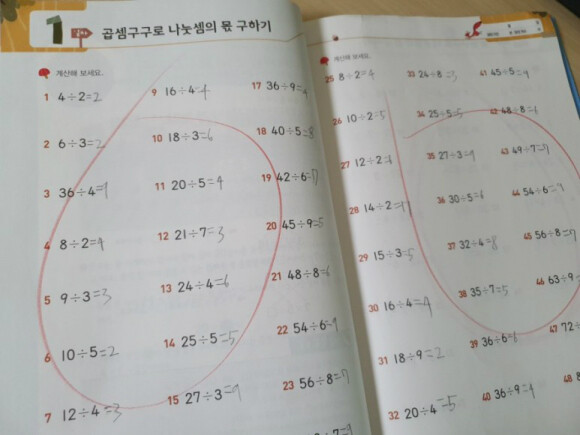 1 곱셈구구로 나눗셈의 몫 구하기
계산해 보세요.
1 4÷2=2
2 6÷3=2
3 36÷4=9
4 8÷2=4
5 9÷3=3
6 10÷5=2
7 12÷4=3
9 16÷4=4
10 18÷3=6
11 20÷5=4
12 21÷7=3
13 24÷4=6
14 25÷5=5
15 27÷3=9
17 36÷9=4
18 40÷5=8
19 42÷6=7
20 45÷9=5
21 48÷8=6
22 54÷6=9
23 56÷8=7
계산해 보세요.
25 8÷2=4
26 10÷2=5
27 12÷2=6
28 14÷2=7
29 15÷3=5
30 16÷4=4
31 18÷9=2
32 20÷4=5
33 24÷8=3
34 25÷5=5
35 27÷3=9
36 30÷5=6
37 32÷4=8
38 35÷7=5
39 36÷6=6
40 36÷9=4
41 45÷5=9
42 48÷8=6
43 49÷7=7
44 54÷6=9
45 56÷8=7
46 63÷9
47 72÷
48 8